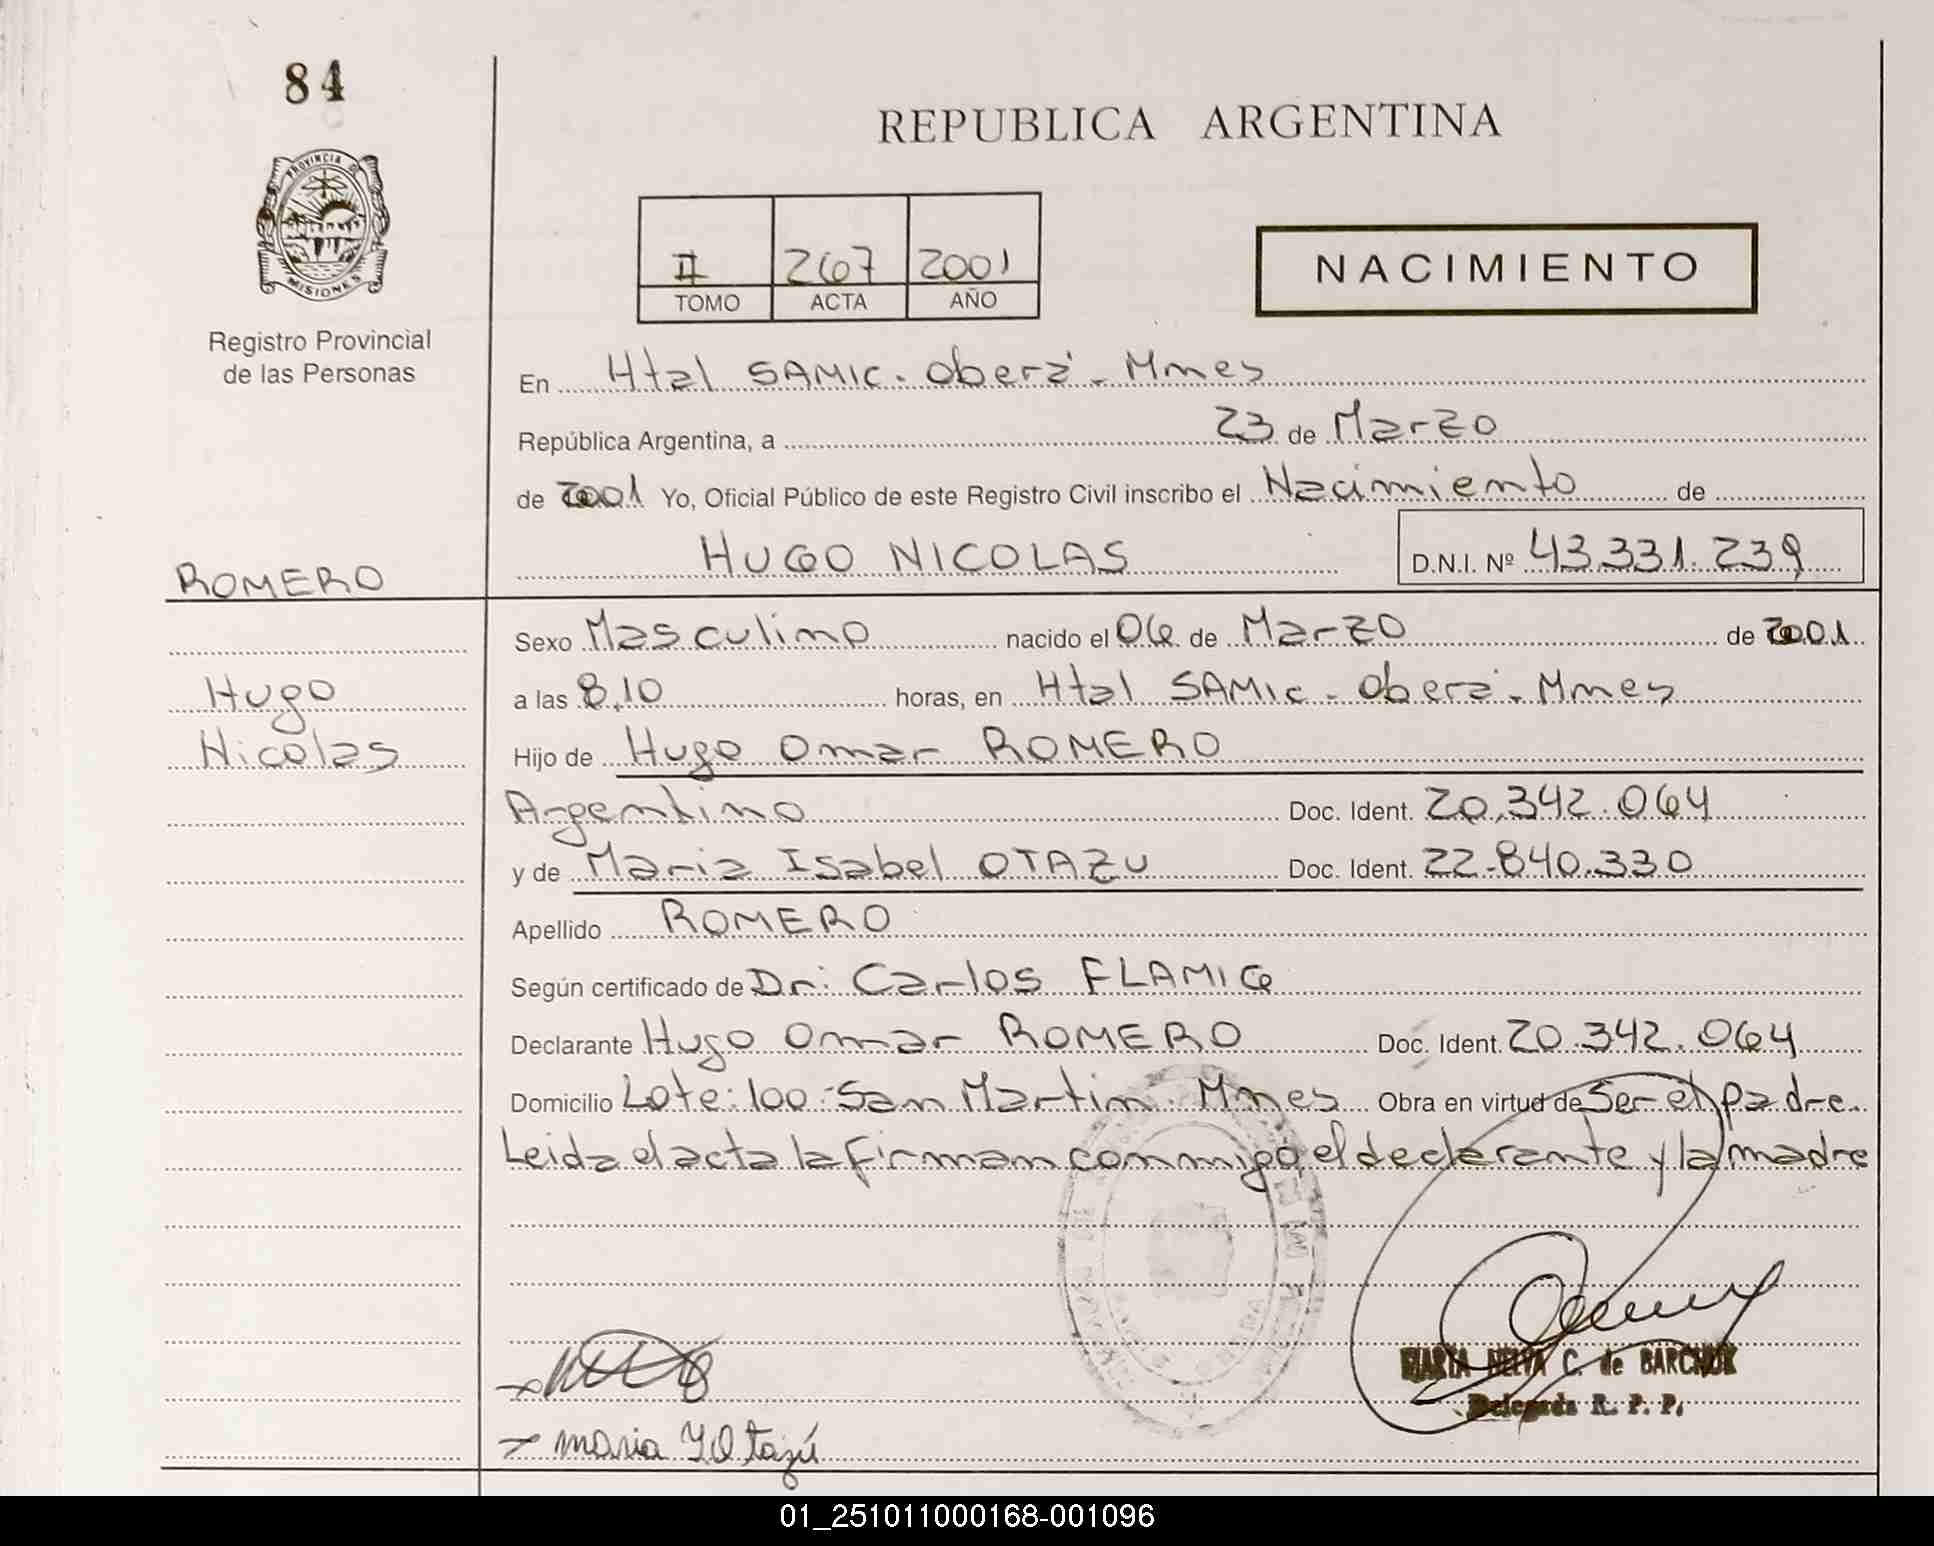 84
REPUBLICA ARGENTINA
PROVINCIA DE
MISIONES
II 267 2001
TOMO ACTA AÑO
NACIMIENTO
Registro Provincial
de las Personas
En Htal SAMIC. Oberá. Mnes
República Argentina, a 23 de Marzo
de 2001 Yo, Oficial Público de este Registro Civil inscribo el Nacimiento de
ROMERO
HUGO NICOLAS D.N.I. Nº 43.331.239
Sexo Masculino nacido el 06 de Marzo de 2001
Hugo
a las 8,10 horas, en Htal SAMIC - Oberá. Mnes
Nicolas
Hijo de Hugo Omar ROMERO
Argentino Doc. Ident. 20.342.064
y de Maria Isabel OTAZU Doc. Ident. 22.840.330
Apellido ROMERO
Según certificado de Dr: Carlos
Declarante Hugo Omar ROMERO Doc. Ident. 20.342.064
Domicilio Lote: 100 - San Martin. Mnes Obra en virtud de Ser el padre.
Leida el acta la firman conmigo el declarante y la madre
MARTA NELVA C. de BARCHUK
Delegada R. P. P.
maria I Otazú
01_251011000168-001096